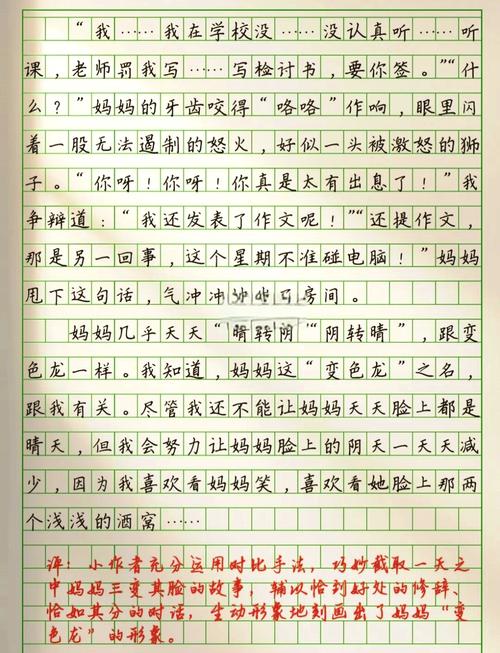 “我……我在学校没……没认真听……听
课，老师罚我写……写检讨书，要你签。”“什
么？”妈妈的牙齿咬得“咯咯”作响，眼里闪
着一股无法遏制的怒火，好似一头被激怒的狮
子。“你呀！你呀！你真是太有出息了！”我
争辩道：“我还发表了作文呢！”“还提作文，
那是另一回事，这个星期不准碰电脑！”妈妈
甩下这句话，气冲冲冲出了房间。
妈妈几乎天天“晴转阴”“阴转晴”，跟变
色龙一样。我知道，妈妈这“变色龙”之名，
跟我有关。尽管我还不能让妈妈天天脸上都是
晴天，但我会努力让妈妈脸上的阴天一天天减
少，因为我喜欢看妈妈笑，喜欢看她脸上那两
个浅浅的酒窝……
评：小作者充分运用对比手法，巧妙截取一天之
中妈妈三变其脸的故事，辅以恰到好处的修辞、
恰如其分的对话，生动形象地刻画出了妈妈“变
色龙”的形象。